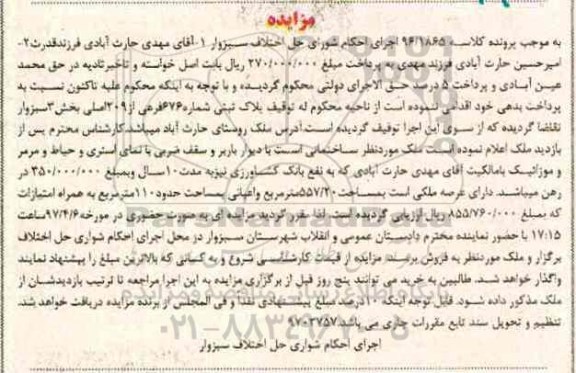 مزایده
به موجب پرونده کلاسه ۹۶/۱۸۶۵ اجرای احکام شورای حل اختلاف سبزوار ۱-آقای مهدی حارث آبادی فرزندقدرت۲-
امیرحسین حارث آبادی فرزند مهدی به پرداخت مبلغ ۲۷۰/۰۰۰/۰۰۰ ریال بابت اصل خواسته و تاخیرتادیه در حق محمد
عینی آبادی و پرداخت ۵درصد حق الاجرای دولتی محکوم گردیده و با توجه به اینکه محکوم علیه تاکنون نسبت به
پرداخت بدهی خود اقدامی ننموده است از ناحیه محکوم له توقیف پلاک ثبتی شماره۶۷۶فرعی از۲۰۹اصلی بخش۳سبزوار
تقاضا گردیده که از سوی این اجرا توقیف گردیده است.آدرس ملک روستای حارث آباد میباشد.کارشناس محترم پس از
بازدید ملک اعلام نموده است ملک موردنظر ساختمانی است با دیوار باربر و سقف ضربی با نمای آستری و حیاط و مرمر
و موزائیک بامالکیت آقای مهدی حارث آبادی که به نفع بانک کشاورزی نیزبه مدت۱۰سال وبمبلغ ۳۵۰/۰۰۰/۰۰۰ در
رهن میباشد. دارای عرصه ملکی است بمساحت۵۵۷/۲۰مترمربع واعیانی بمساحت حدود۱۱۰مترمربع به همراه امتیازات
که بمبلغ ۸۵۵/۷۶۰/۰۰۰ریال ارزیابی گردیده است. لذا مقرر گردید مزایده ای به صورت حضوری در مورخه۹۷/۴/۶ساعت
۱۷:۱۵ با حضور نماینده محترم دادستان عمومی و انقلاب شهرستان سبزوار در محل اجرای احکام شواری حل اختلاف
برگزار و ملک موردنظر به فروش برسد. مزایده از قیمت کارشناسی شروع و به کسانی که بالاترین مبلغ را پیشنهاد نمایند
واگذار خواهد شد. طالبین به خرید می توانند پنج روز قبل از برگزاری مزایده به این اجرا مراجعه تا ترتیب بازدیدشان از
ملک مذکور داده شود. قابل توجه اینکه ۱۰درصد مبلغ پیشنهادی نقدا و فی المجلس از برنده مزایده دریافت خواهد شد.
تنظیم و تحویل سند تابع مقررات جاری می باشد.۹۷۰۲۷۵۷
اجرای احکام شواری حل اختلاف سبزوار
ParsNamadData
۰۲۱-۸۸۳۴۹۶۷۰-۵